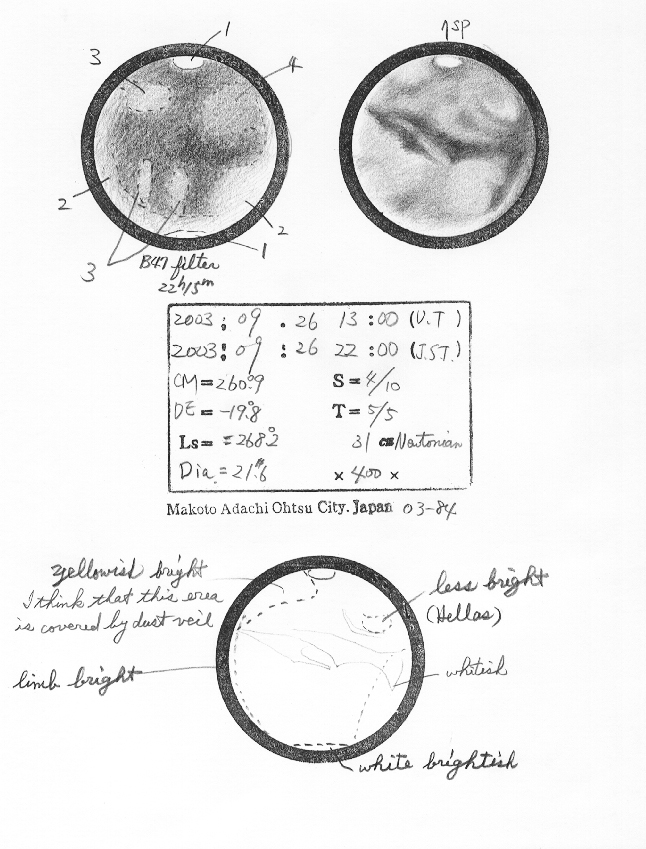 1
↑SP
3
4
2
2
1
3
B47 filter
22h15m
2003 : 09 . 26 13 : 00 (U.T )
2003 : 09 : 26 22 : 00 (J.S.T.)
CM = 260.°9 S = 4/10
DE = -19.°8 T = 5/5
Ls = = 268.°2 31 cm Newtonian
Dia. = 21."6 × 400 ×
Makoto Adachi Ohtsu City. Japan 03-84
yellowish bright
I think that this area
is covered by dust veil
less bright
(Hellas)
limb bright
whitish
white brightish